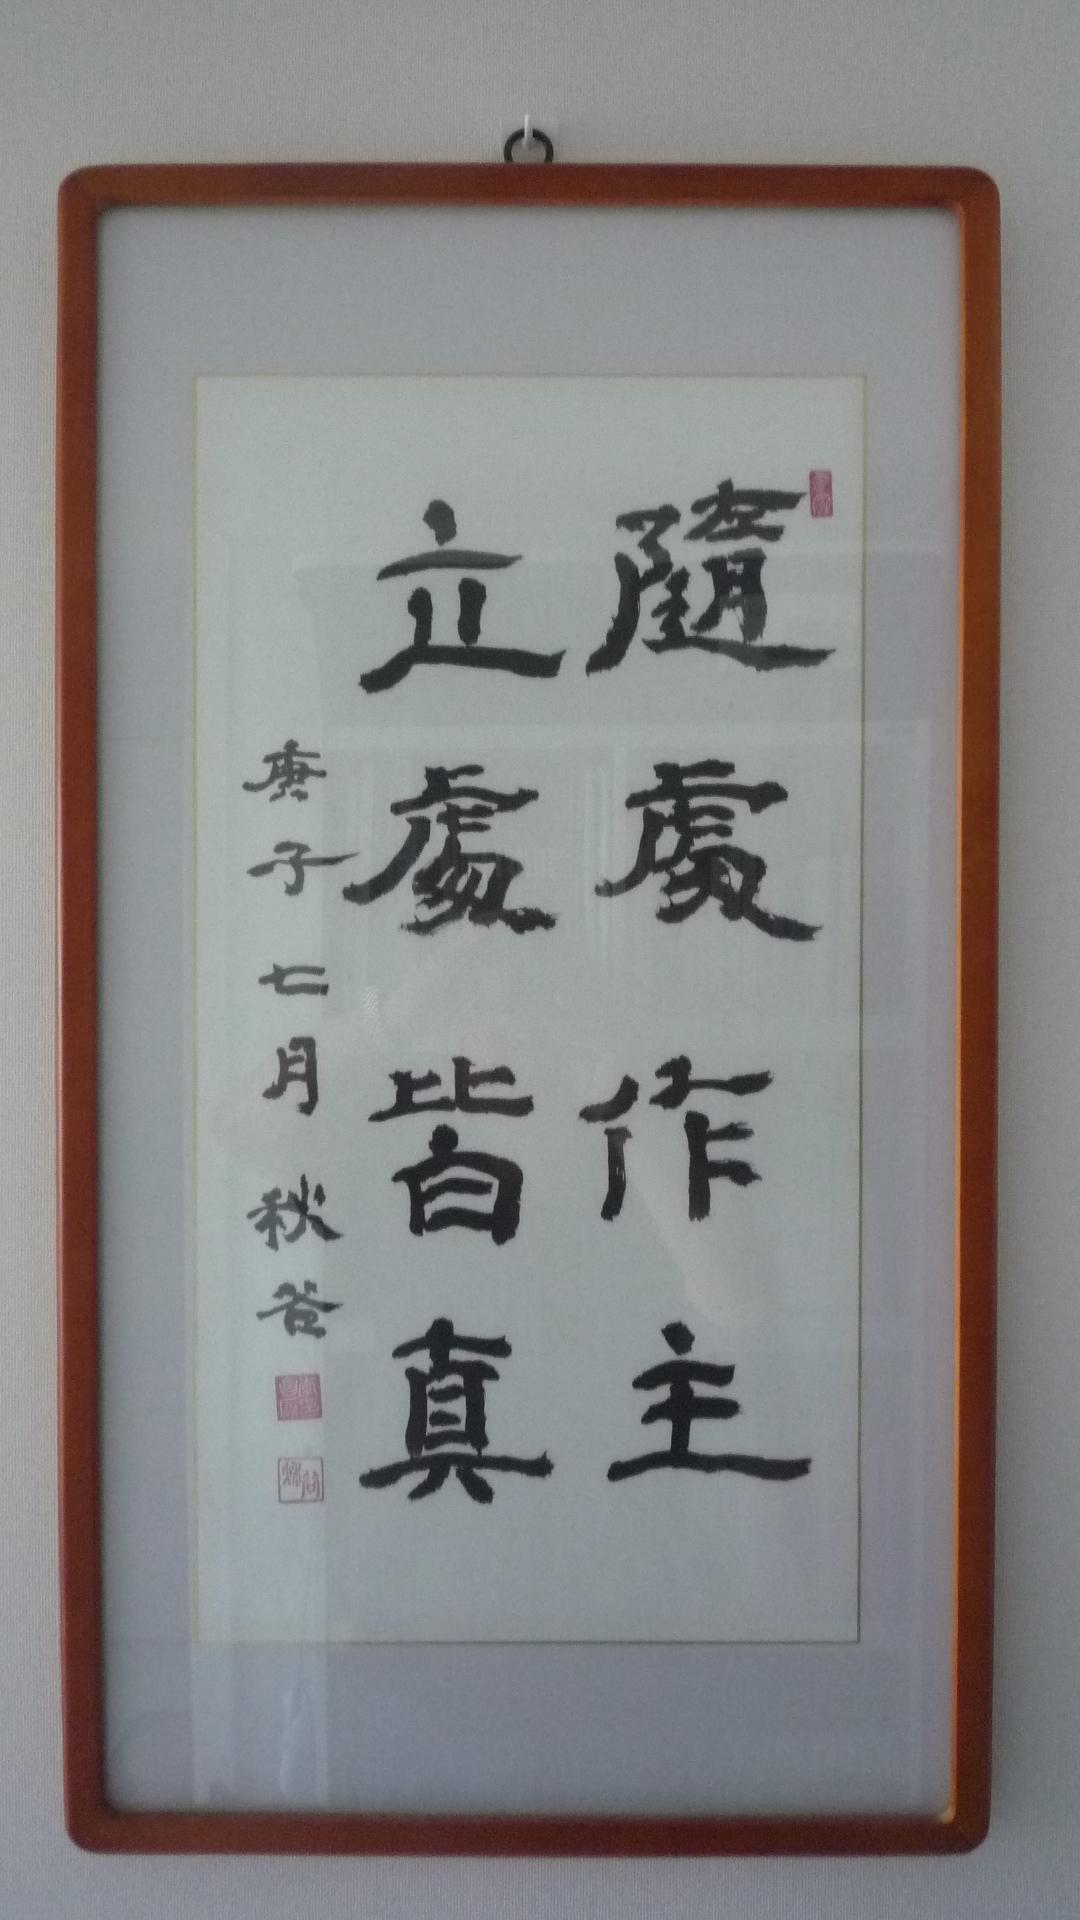 隨處作主
立處皆真
庚子七月 秋谷